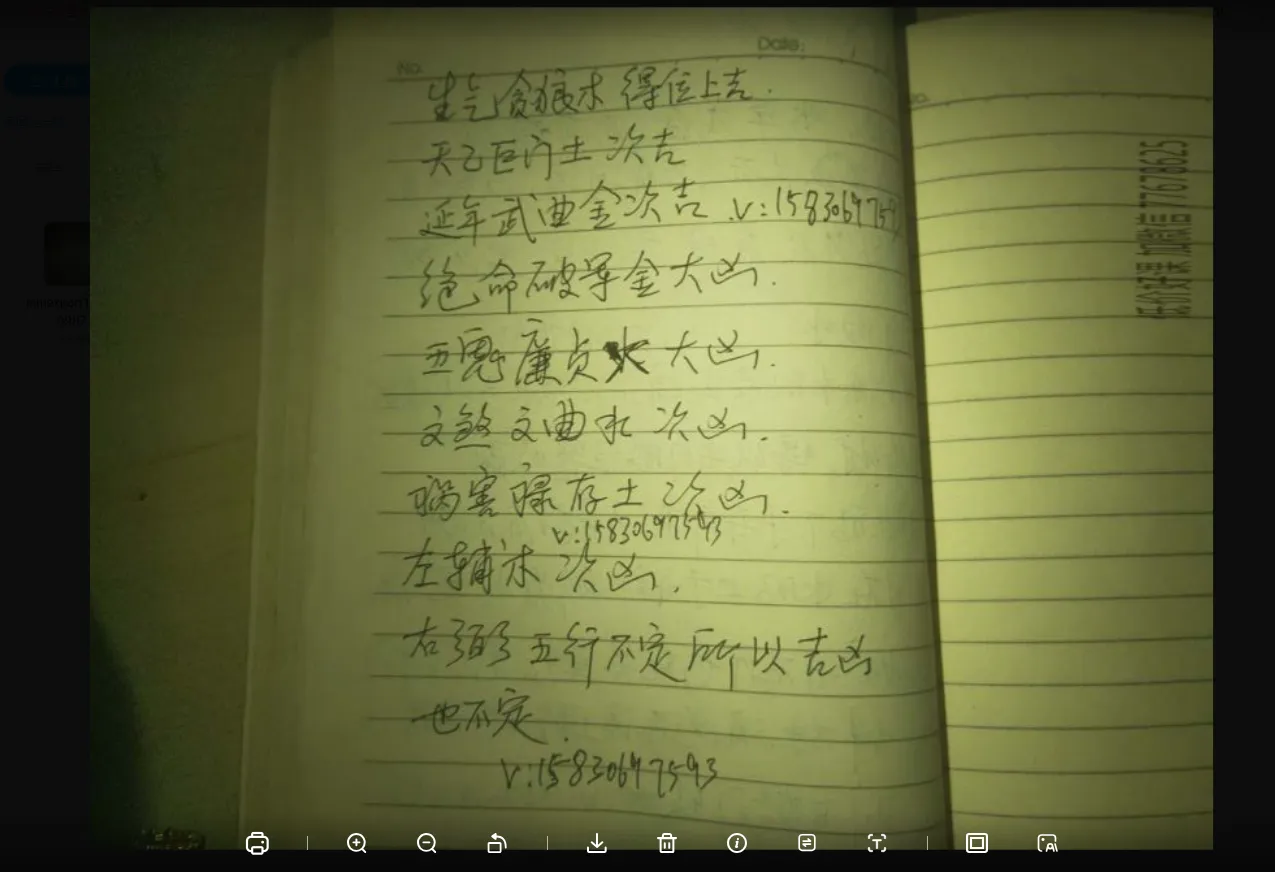 No.
Date:
生气贪狼木 得位上吉.
天乙巨门土 次吉
延年武曲金次吉 v:1583069759
绝命破军金大凶.
五鬼廉贞火 大凶.
文煞文曲水 次凶.
祸害禄存土 次凶.
v:15830697593
左辅木 次凶.
右弼 五行不定所以吉凶
也不定.
v:15830697593
低价好课 加微信 77678625